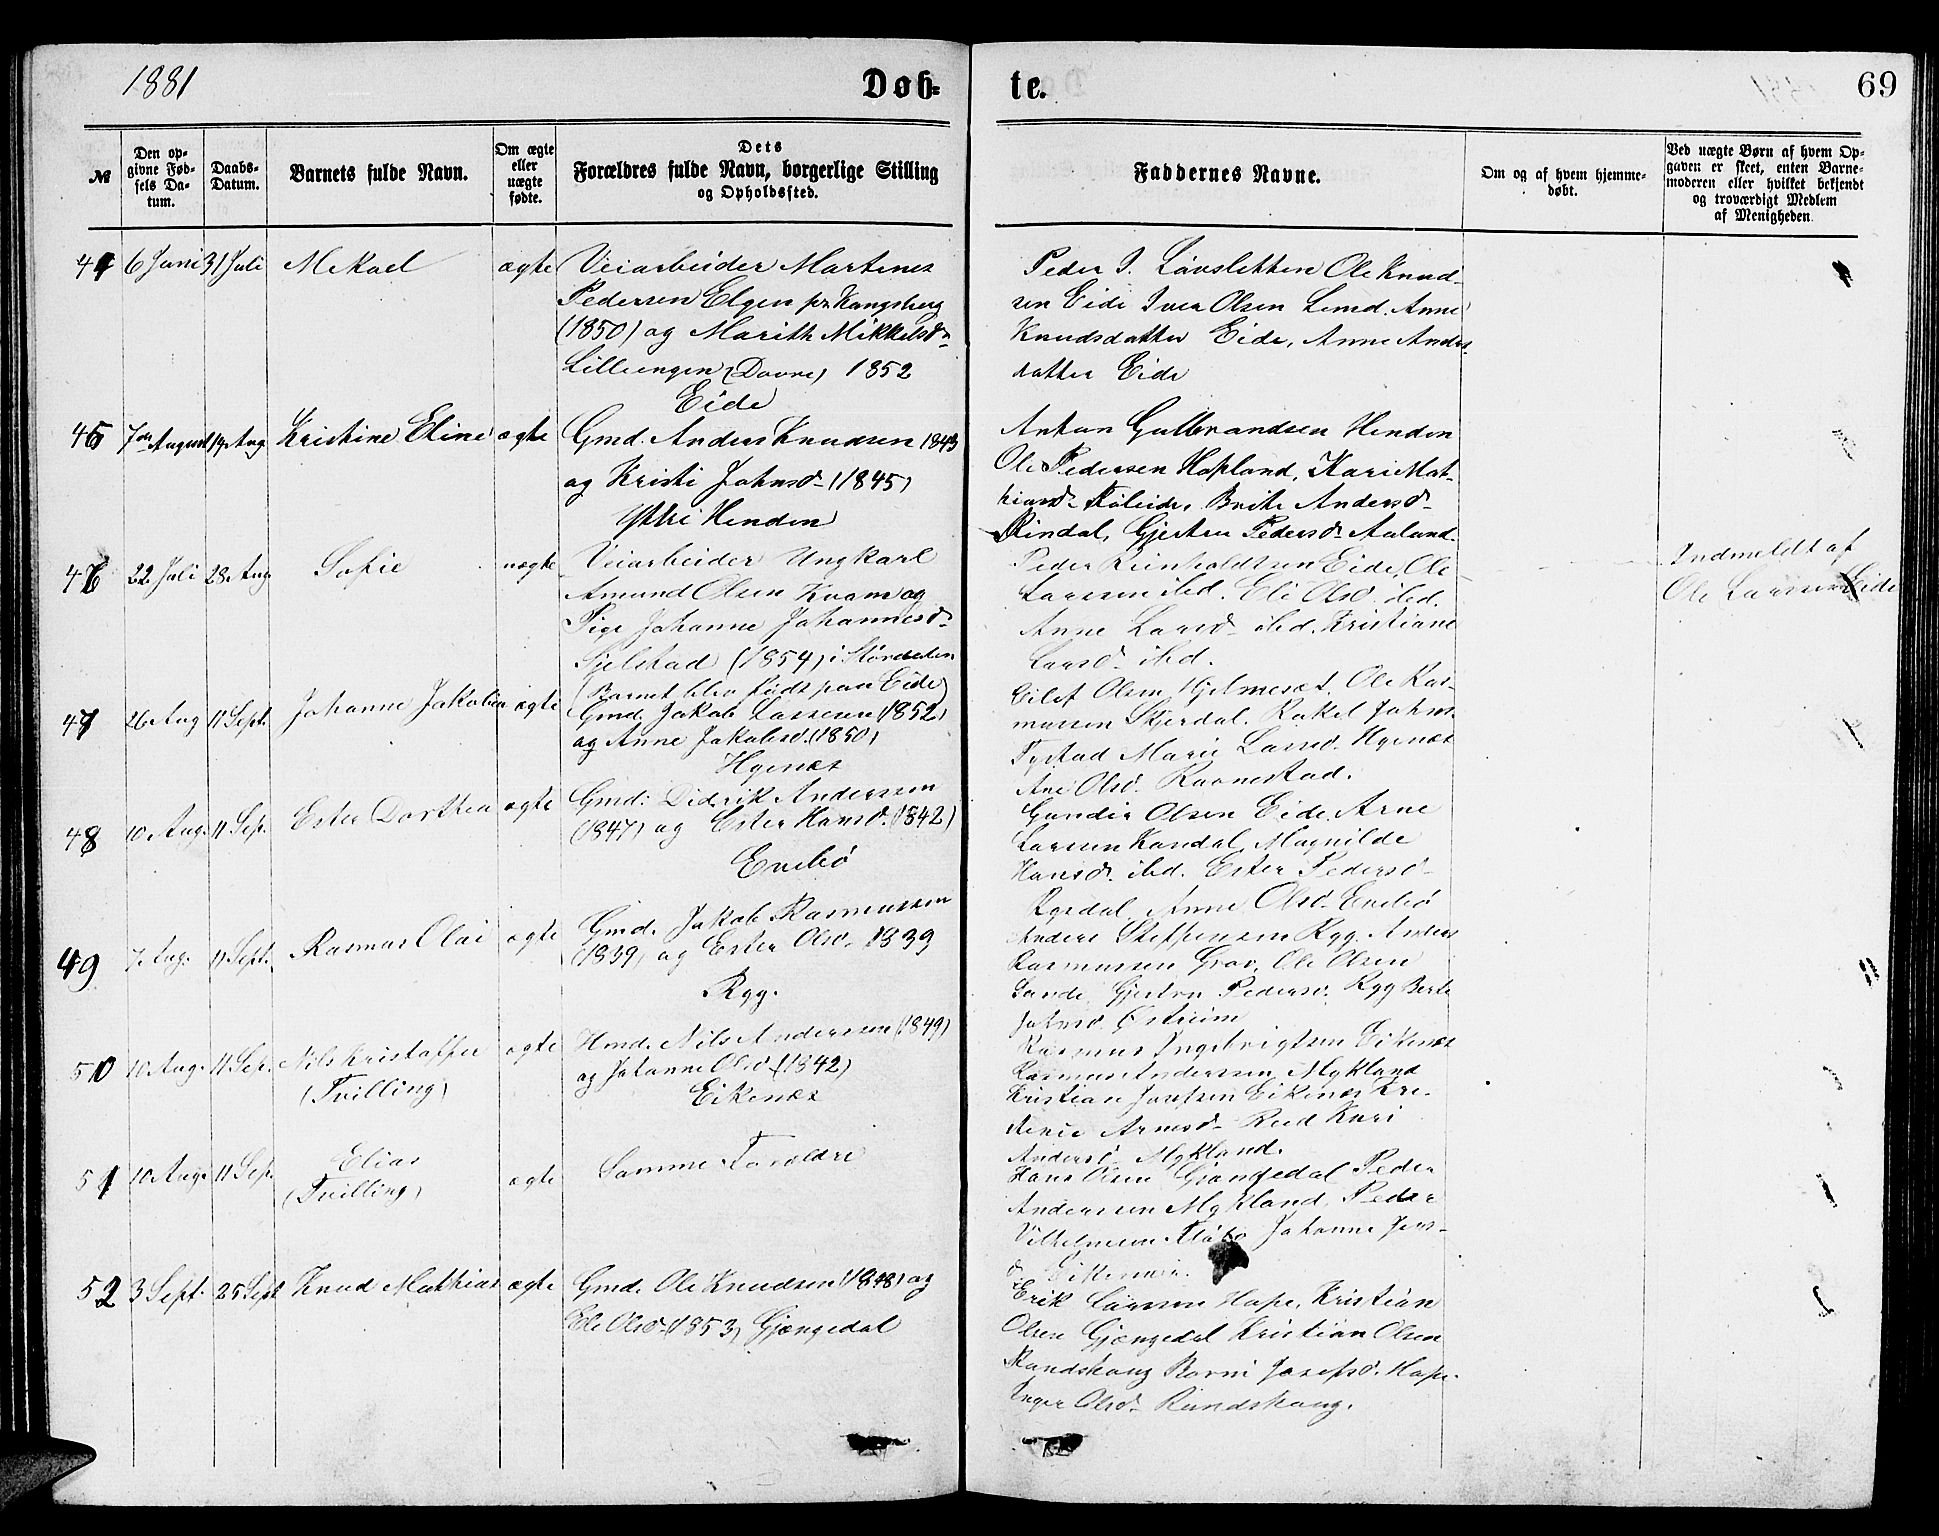 1881 Døb= te. 69
№
Den op-
givne Fød-
sels Da-
tum.
Daabs-
Datum.
Barnets fulde Navn.
Om ægte
eller
uægte
fødte.
Dets
Forældres fulde Navn, borgerlige Stilling
og Opholdssted.
Faddernes Navne.
Om og af hvem hjemme-
døbt.
Ved uægte Børn af hvem Op-
gaven er skeet, enten Barne-
moderen eller hvilket bekjendt
og troværdigt Medlem
af Menigheden.
6 Juni 31 Juli Mekael ægte Veiarbeider Martines
Pedersen Elgen pr Kongsberg
(1850) og Marith Mikkelsdr
Lilleengen (Dovre) 1852
Eide
Peder J. Løvsletten Ole Knud-
sen Eide Iver Olsen Anne
Knudsdatter Eide, Anne Anders-
datter Eide
45 7de August 14 Aug Kristine Eline ægte Gmd. Anders Knudsen 1843
og Kristi Johnsd (1845)
Ytre Henden
Anton Gulbrandsen Henden
Ole Pedersen Hopland, Kari Mat-
hiasd. Føleide, Brite Andersd
Rindal, Gjertru Pedersd. Aaland.
46 22 Juli 28 Aug Sofie uægte Veiarbeider Ungkarl
Amund Olsen Kvam og
Pige Johanne Johannesd
Sjelstad (1854) i
(Barnet blev født paa Eide)
Peder Reinholdtsen Eide, Ole
Larssen ibd. Eli Olsd. ibd.
Anne Larsd ibd. Kristiane
Larsd ibd.
Indmeldt af
Ole Larssen Eide
47 26 Aug 11 Sept. Johanne Jakobia ægte Gmd. Jakob Lassesen (1852)
og Anne Jakobsd. (1850)
Hyenæs
Eilef Olsen Hjelmeset. Ole Ras-
mussen Skjerdal. Rakel Johns.
Tystad Marie Larsd. Hyenæs
Ane Olsd. Ravnestad.
48 10 Aug. 11 Sep. Ester Dorthea ægte Gmd. Didrik Anderssen
(1847) og Ester Hansd. (1842)
Enebø
Gunder Olsen Eide, Arne
Larsen Kandal, Magnilde
Hansd. ibd. Ester Pedersd
Rygdal, Anne Olsd. Enebø
49 7 Aug. 11 Sept. Rasmus Olai ægte Gmd. Jakob Rasmussen
(1839) og Ester Olsd. 1839
Rygg.
Anders Steffensen Rygg. Anders
Rasmussen Grov, Ole Olsen
Sande, Gjertru Pedersd. Rygg Berte
Johnsd. Østreim
50 10 Aug. 11 Sep. Nils Kristoffer ægte Hmd. Nils Anderssen (1849)
(Tvilling) og Johanne Olsd. (1842)
Eikenæs
Rasmus Ingebrigtsen Eikenæs
Rasmus Anderssen Mykland
Kristian Josefsen Eikenæs
Arnesd. Reed Kari
Andersd. Mykland.
51 10 Aug. 11 Sep. Elias ægte Samme Forældre
(Tvilling)
Hans Olsen Gjøngedal Peder
Anderssen Mykland. Peder
Vilhelmsen Johanne Jens-
d. Eikenæs.
52 3 Sept. 25 Sept Knud Mathias ægte Gmd. Ole Knudsen (1848) og
Eli Olsd. (1853) Gjøngedal
Erik Larssen Hope, Kristian
Olsen Gjøngedal Kristian Olsen
Rundskaug Josefsd. Hope.
Inger Olsd. Rundskaug.